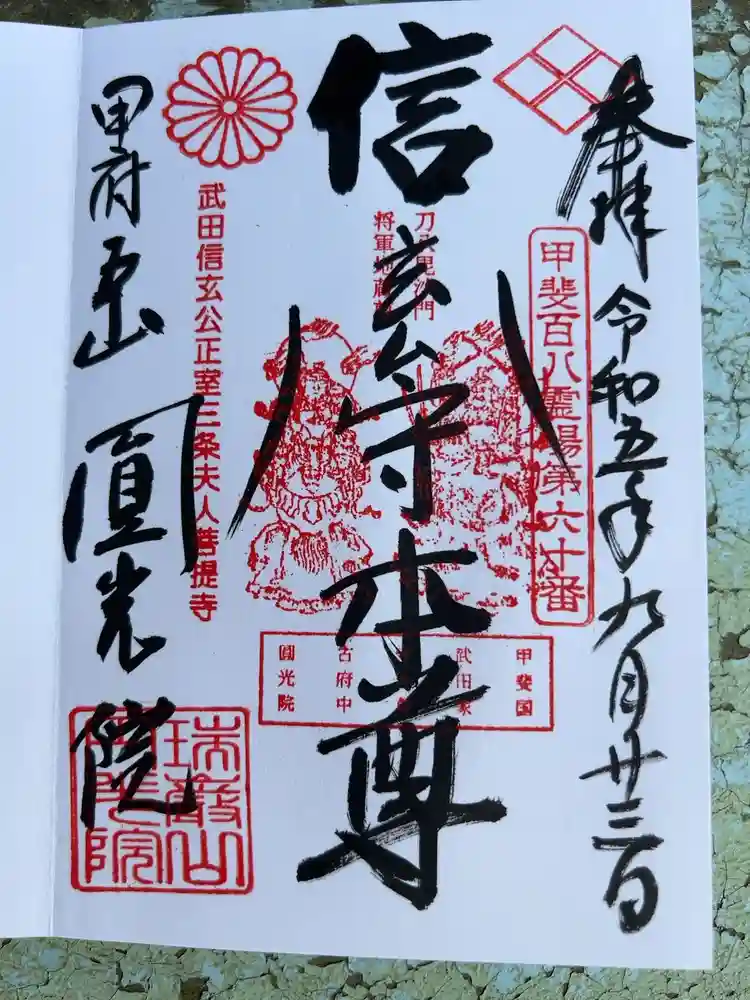 奉拝 令和五年九月廿三日
甲斐百八霊場第六十番
信玄公守本尊
刀八毘沙門
将軍地蔵
甲斐国
武田家
古府中
圓光院
武田信玄公正室三条夫人菩提寺
甲府五山 圓光院
瑞巌山
圓光院